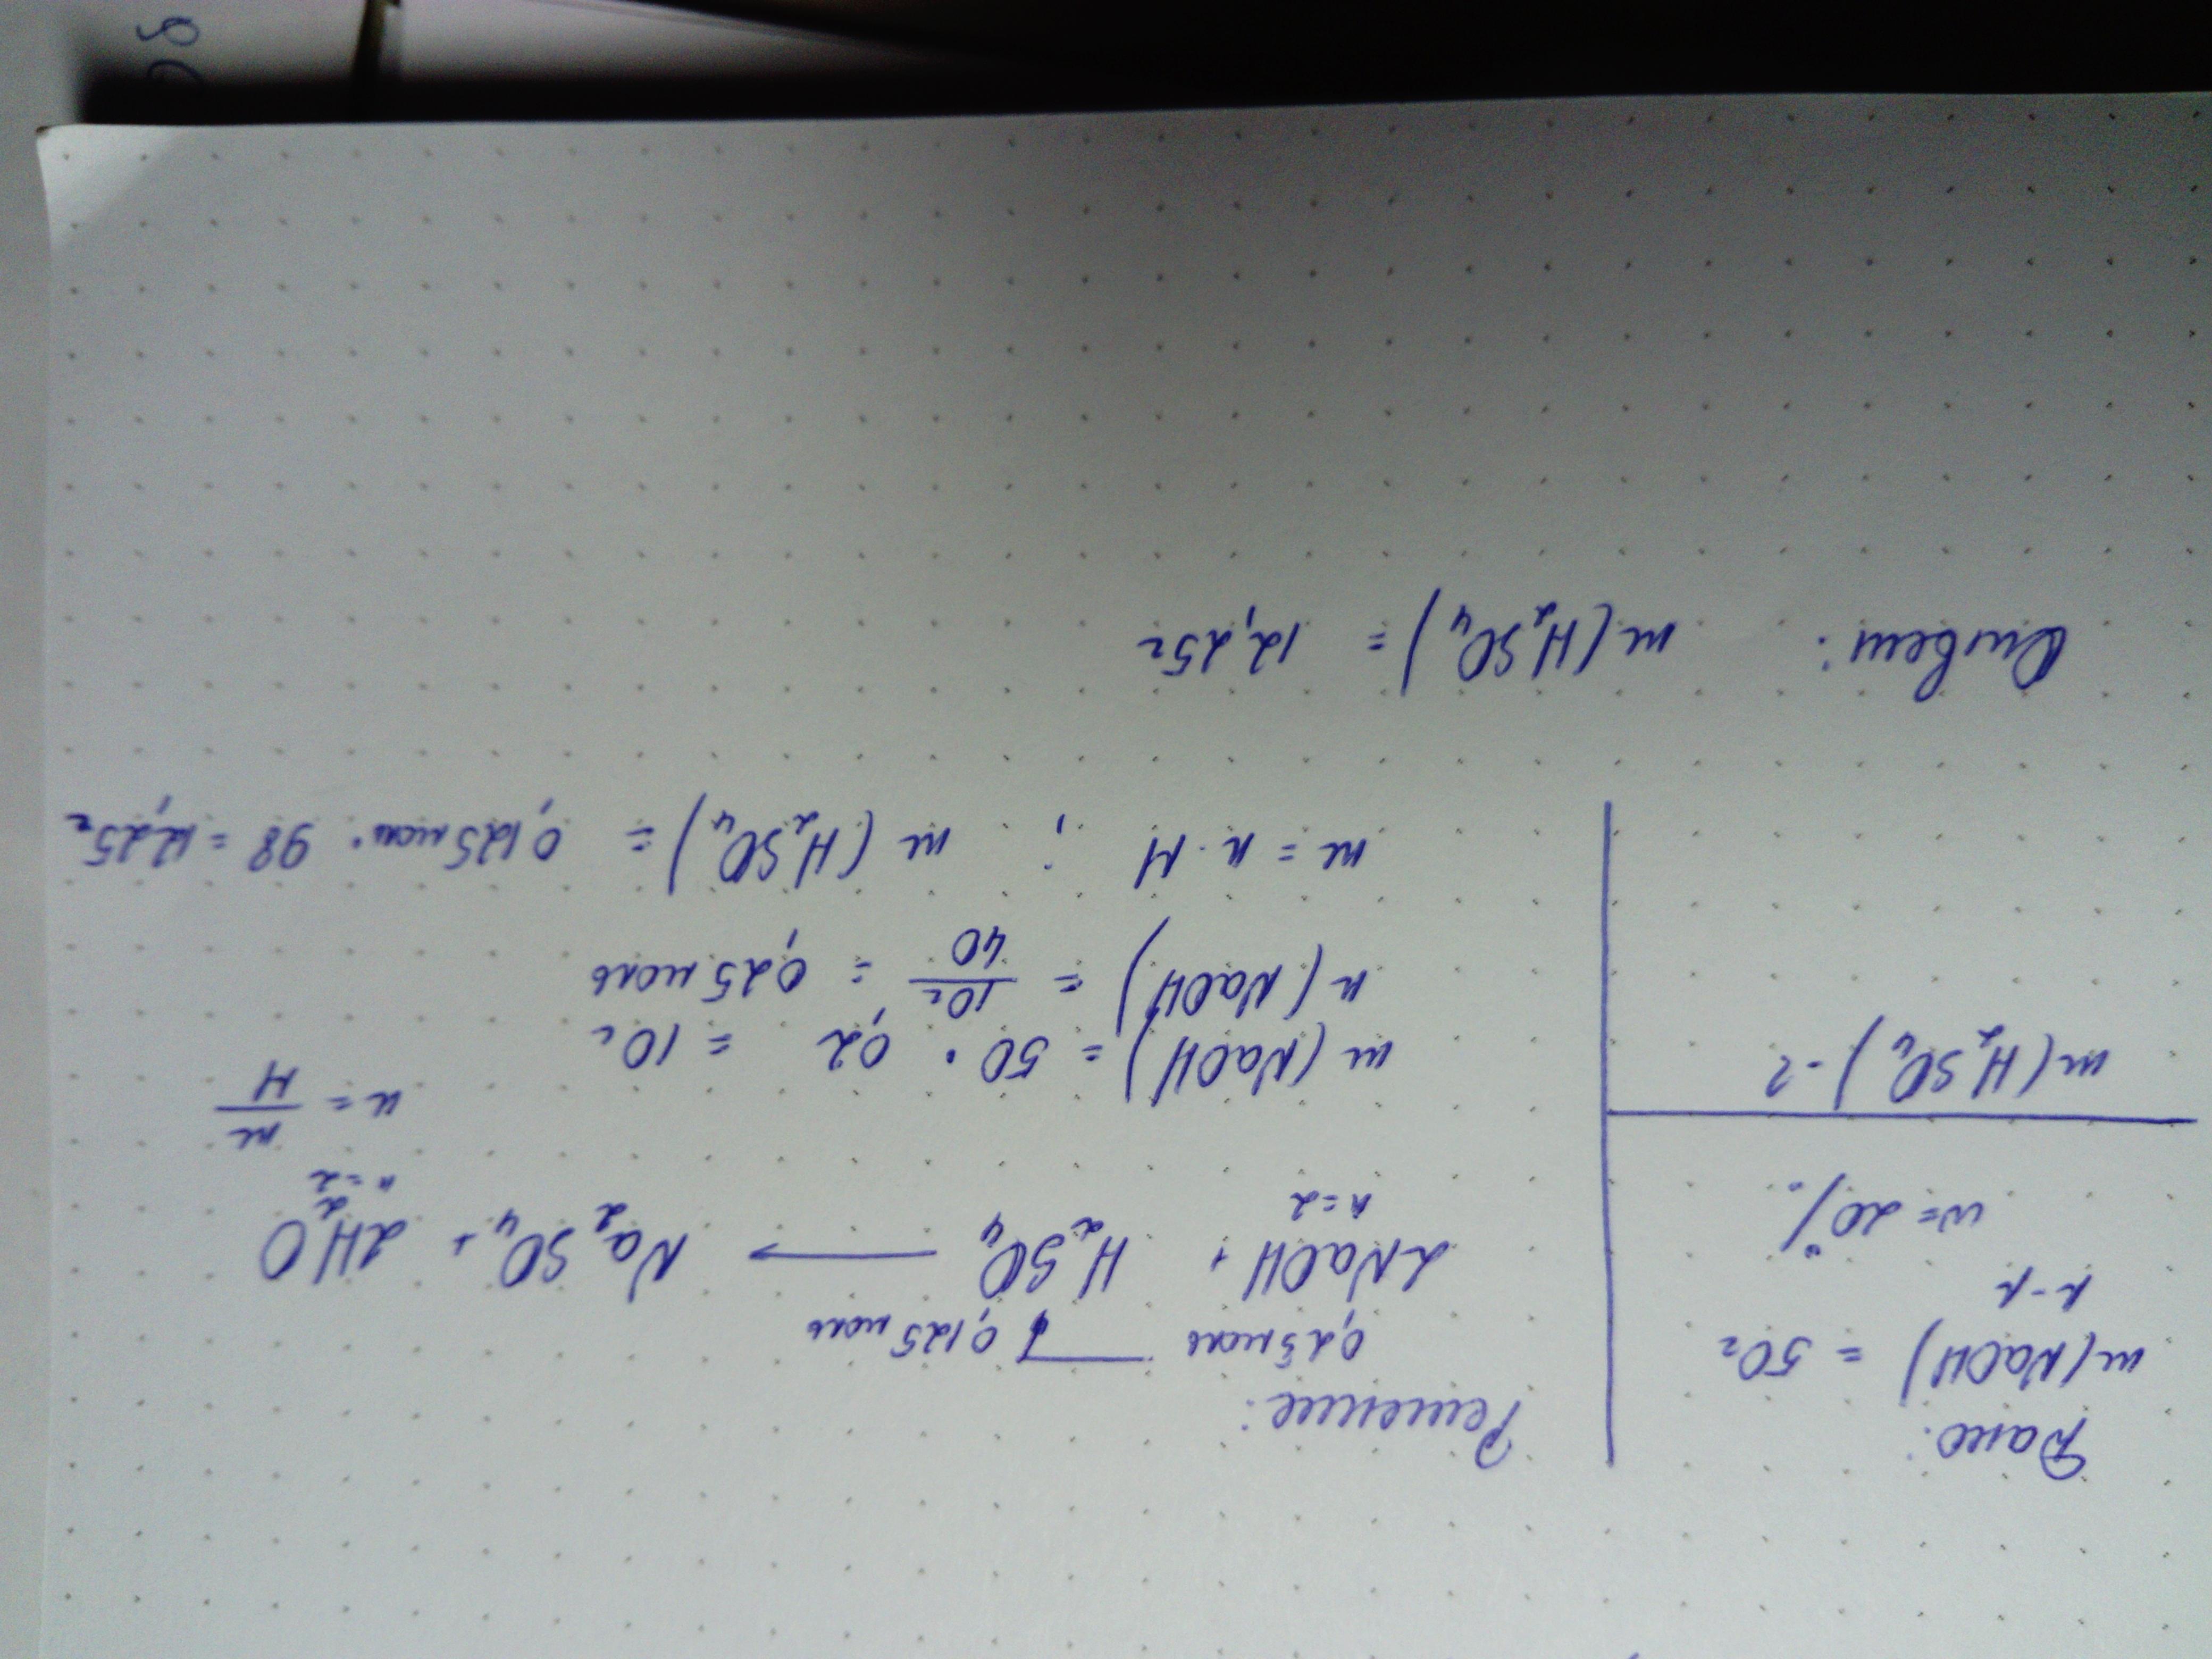 Дано:
m(NaOH) = 50г
р-р
w = 20%
m(H₂SO₄) - ?
Решение:
0,25 моль 0,125 моль
2NaOH + H₂SO₄ → Na₂SO₄ + 2H₂O
n=2 n=2
n = m/M
m(NaOH) = 50 · 0,2 = 10г
n(NaOH) = 10г/40 = 0,25 моль
m = n · M ; m(H₂SO₄) = 0,125 моль · 98 = 12,25г
Ответ: m(H₂SO₄) = 12,25г